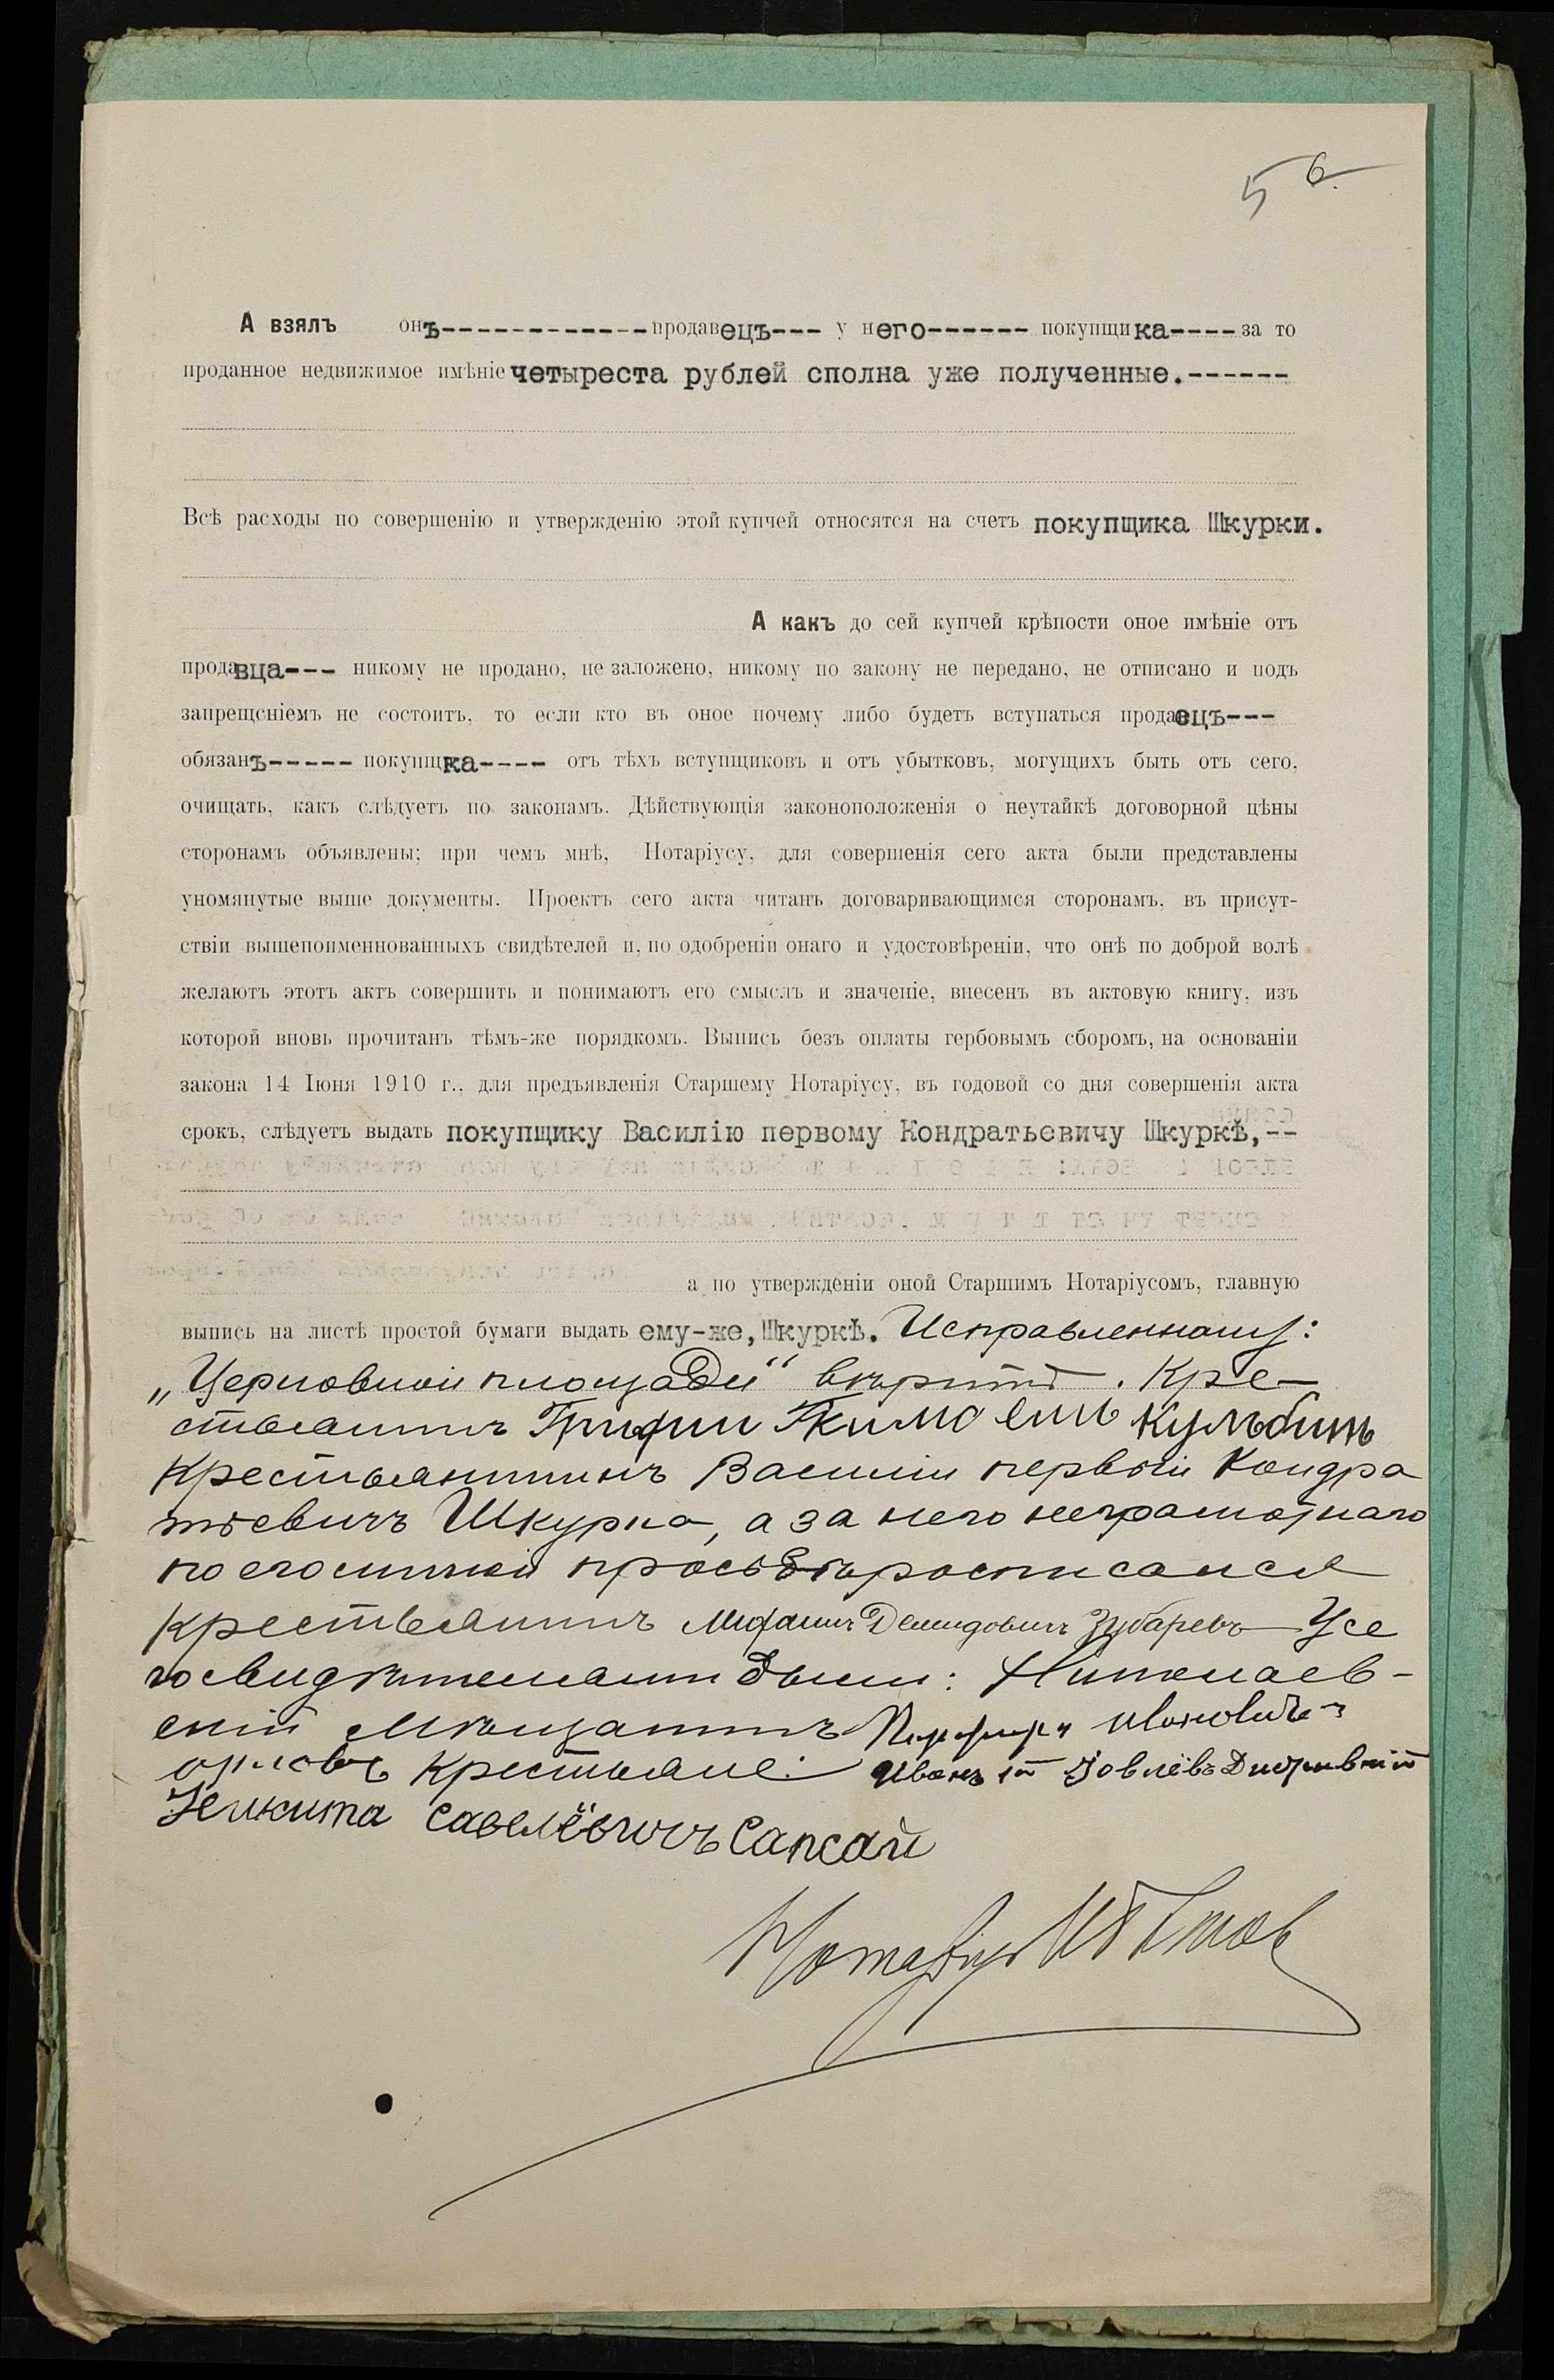 5 6.
А взялъ онъ-------------продавецъ--- у него------ покупщика----за то
проданное недвижимое имѣніе четыреста рублей сполна уже полученные.------
Всѣ расходы по совершенію и утвержденію этой купчей относятся на счетъ покупщика Шкурки.
А какъ до сей купчей крѣпости оное имѣніе отъ
продавца--- никому не продано, не заложено, никому по закону не передано, не отписано и подъ
запрещеніемъ не состоитъ, то если кто въ оное почему либо будетъ вступаться продавецъ---
обязанъ----- покупщка---- отъ тѣхъ вступщиковъ и отъ убытковъ, могущихъ быть отъ сего,
очищать, какъ слѣдуетъ по законамъ. Дѣйствующія законоположенія о неутайкѣ договорной цѣны
сторонамъ объявлены; при чемъ мнѣ, Нотаріусу, для совершенія сего акта были представлены
упомянутые выше документы. Проектъ сего акта читанъ договаривающимся сторонамъ, въ присут-
ствіи вышепоименнованныхъ свидѣтелей и, по одобреніи онаго и удостовѣреніи, что онѣ по доброй волѣ
желаютъ этотъ актъ совершить и понимаютъ его смыслъ и значеніе, внесенъ въ актовую книгу, изъ
которой вновь прочитанъ тѣмъ-же порядкомъ. Выпись безъ оплаты гербовымъ сборомъ, на основаніи
закона 14 Іюня 1910 г., для предъявленія Старшему Нотаріусу, въ годовой со дня совершенія акта
срокъ, слѣдуетъ выдать покупщику Василію первому Кондратьевичу Шкуркѣ,--
а по утвержденіи оной Старшимъ Нотаріусомъ, главную
выпись на листѣ простой бумаги выдать ему-же, Шкуркѣ. Исправленному:
„Церковной площади“ вѣрить. Кре-
стьянинъ Кульбитъ
Крестьянинъ Василій первый Кондра
тьевичъ Шкурка, а за него неграмотнаго
по его личной просьбѣ росписался
крестьянинъ Демидовичъ Зубаревъ У се
го свидѣтелями были: Николаев-
скій мѣщанинъ Ивановичъ
орловъ крестьяне: Иванъ
Никита Савелёвичъ Сапсай
Нотаріусъ